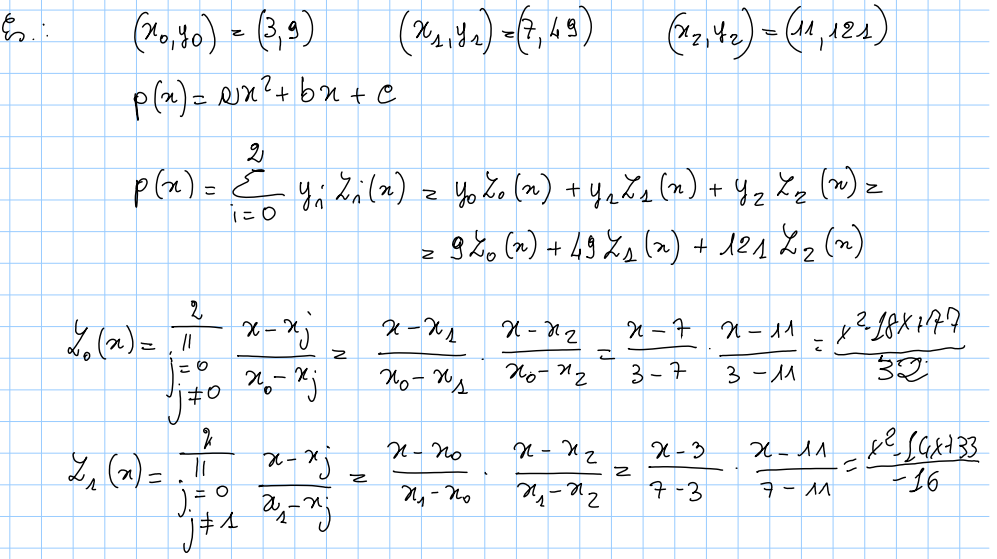 Es.: (x₀,y₀) = (3,9) (x₁,y₁) = (7,49) (x₂,y₂) = (11,121)
p(x) = ax² + bx + c
p(x) = ∑_{i=0}^{2} yᵢ Lᵢ(x) = y₀L₀(x) + y₁L₁(x) + y₂L₂(x) =
= 9L₀(x) + 49L₁(x) + 121L₂(x)
L₀(x) = ∏_{j=0, j≠0}^{2} (x-xⱼ)/(x₀-xⱼ) = (x-x₁)/(x₀-x₁) · (x-x₂)/(x₀-x₂) = (x-7)/(3-7) · (x-11)/(3-11) = (x²-18x+77)/32
L₁(x) = ∏_{j=0, j≠1}^{2} (x-xⱼ)/(x₁-xⱼ) = (x-x₀)/(x₁-x₀) · (x-x₂)/(x₁-x₂) = (x-3)/(7-3) · (x-11)/(7-11) = (x²-14x+33)/-16